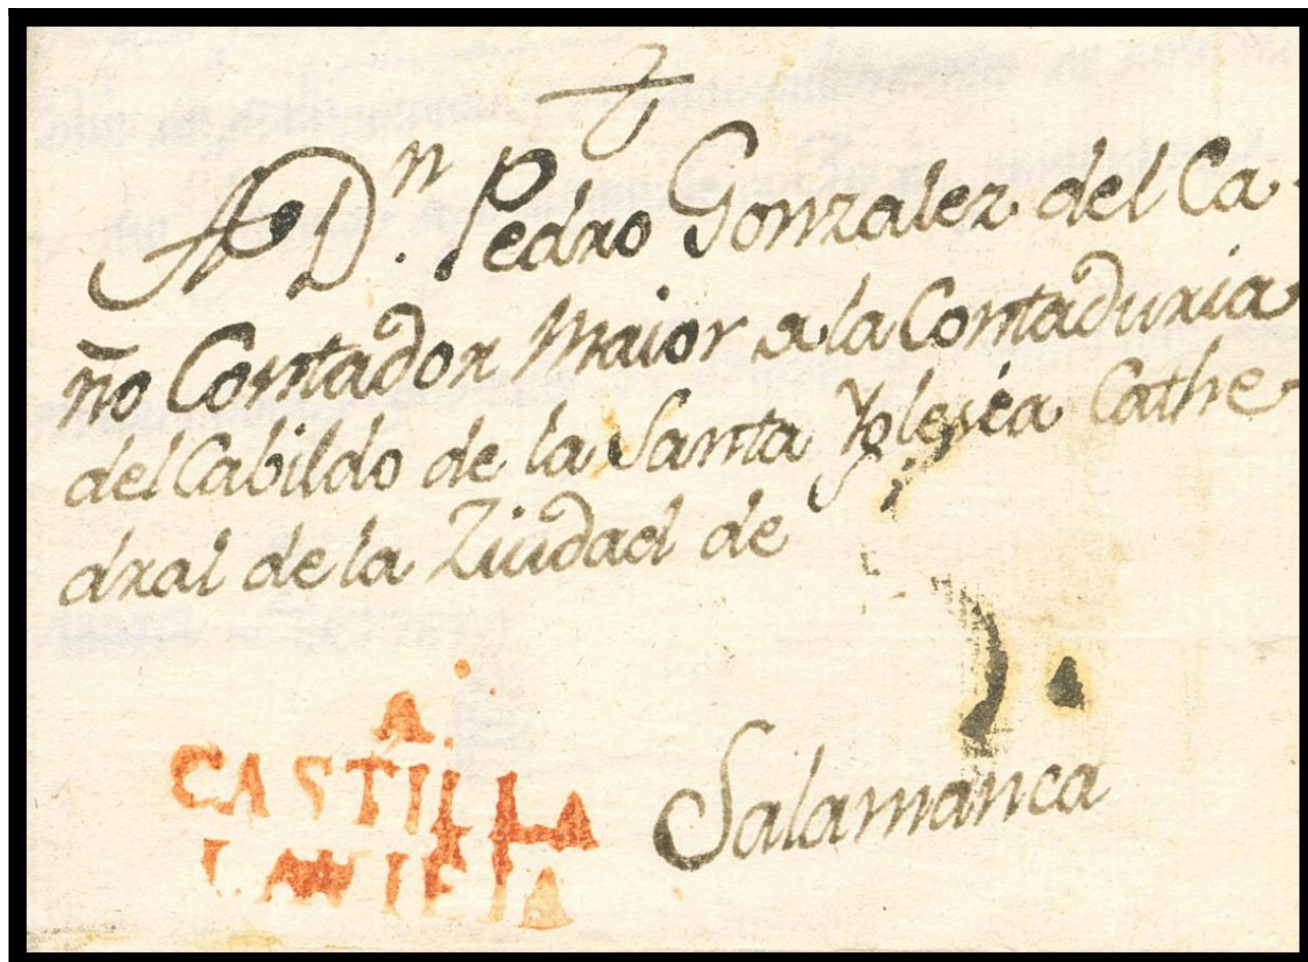 A Dn. Pedro Gonzalez del Ca-
ño Contador Maior a la Contaduria
del Cabildo de la Santa Yglesia Cathe-
dral de la Ziudad de
Salamanca
A.
CASTILLA
LA VIEJA